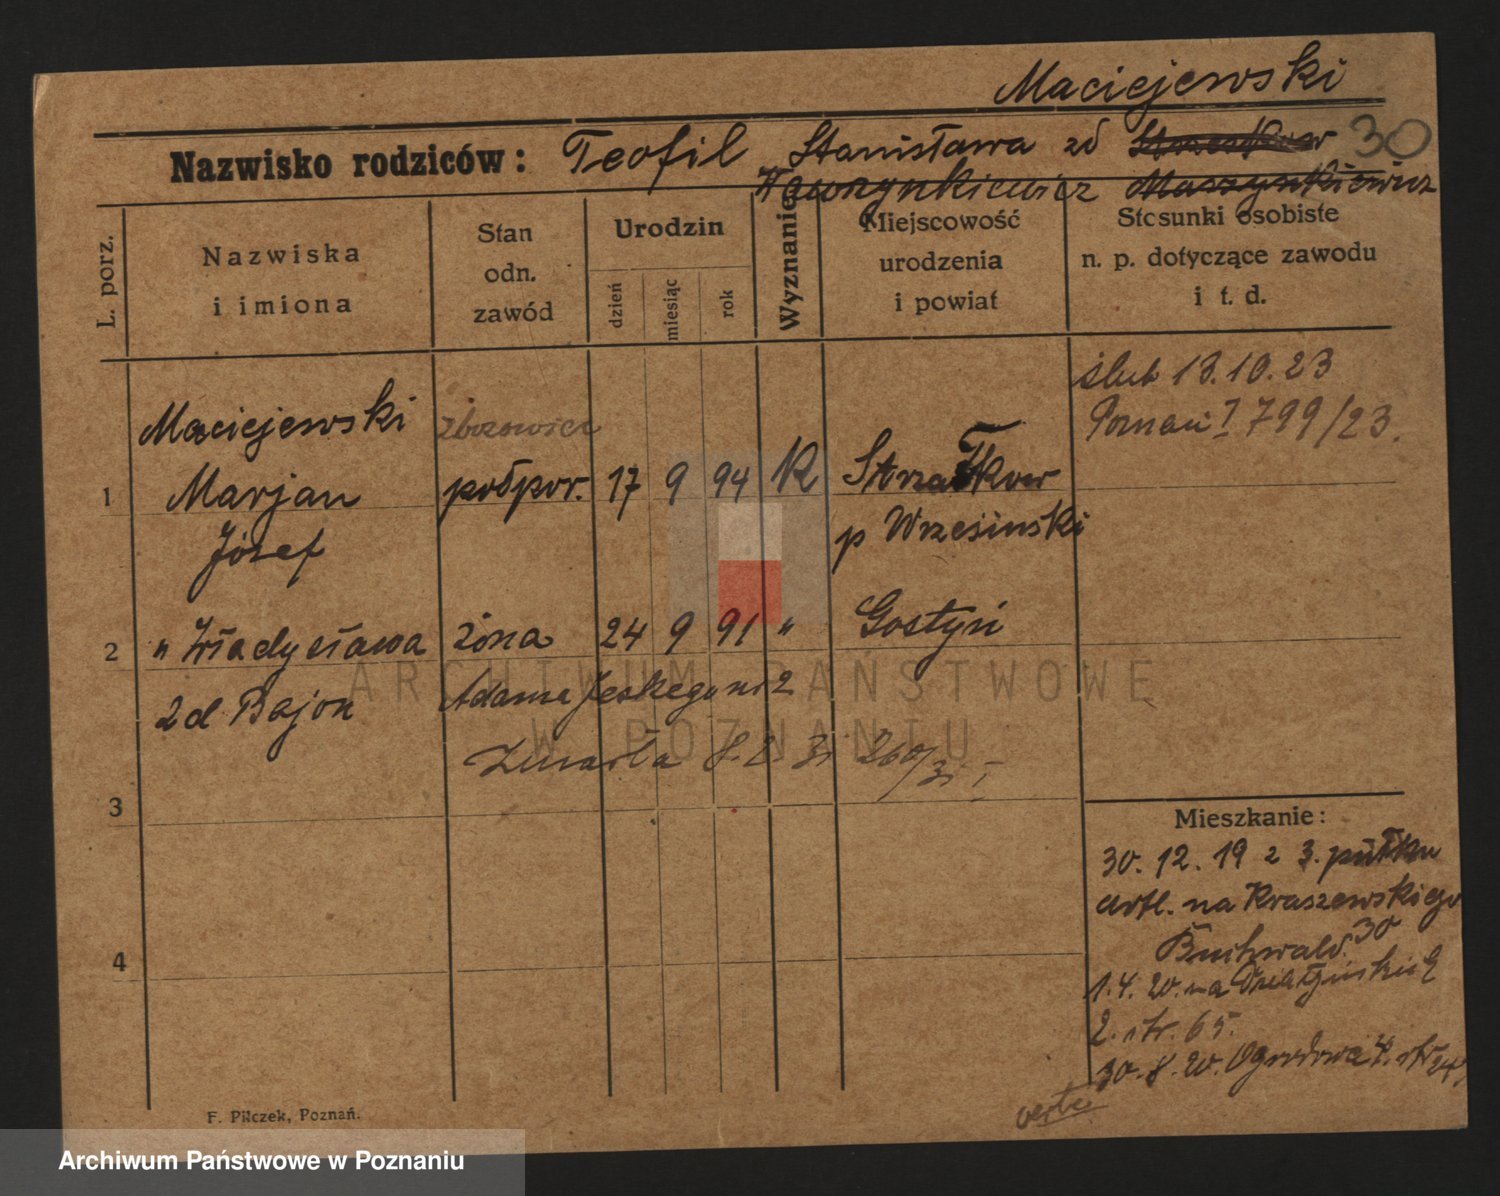 Maciejewski
30
Nazwisko rodziców: Teofil Stanisława zd
Wawrzynkiewicz Maszynkiewicz
L. porz.
Nazwiska
i imiona
Stan
odn.
zawód
Urodzin
dzień
miesiąc
rok
Wyznanie
Miejscowość
urodzenia
i powiat
Stosunki osobiste
n. p. dotyczące zawodu
i t. d.
ślub 13.10.23
Poznań I 799/23.
Maciejewski
1 Marjan podpor. 17 9 94 K Strzałkow
Józef p Wrzesiński
2 " Władysława żona 24 9 91 " Gostyń
zd Bajon Adama Jeskego nr 2
Zmarła 260/31 I
3
4
Mieszkanie:
30. 12. 19 z 3. pułku
artl. na Kraszewskiego
Buchwald 30
1.4.20. na Działyńskich
2. str. 65.
30.8.20. Ogrodowa 4. str 24
verte
F. Pilczek, Poznań.
ARCHIWUM PAŃSTWOWE
W POZNANIU
Archiwum Państwowe w Poznaniu